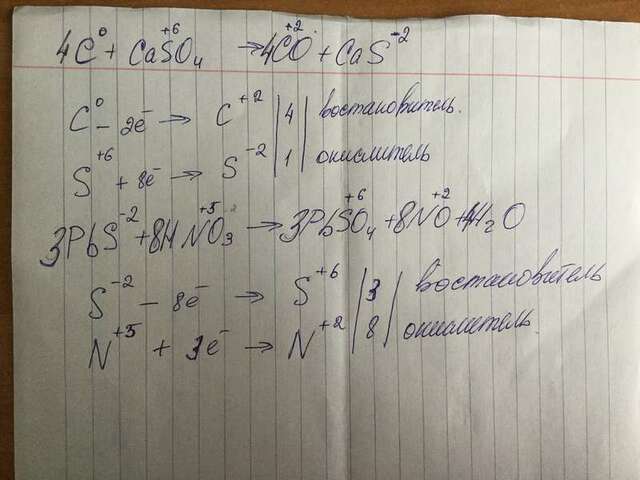 4C⁰ + CaS⁺⁶O₄ → 4C⁺²O + CaS⁻²
C⁰ - 2e⁻ → C⁺² | 4 | востановитель.
S⁺⁶ + 8e⁻ → S⁻² | 1 | окислитель
3PbS⁻² + 8HN⁺⁵O₃ → 3PbS⁺⁶O₄ + 8N⁺²O + 4H₂O
S⁻² - 8e⁻ → S⁺⁶ | 3 | востановитель
N⁺⁵ + 3e⁻ → N⁺² | 8 | окислитель.